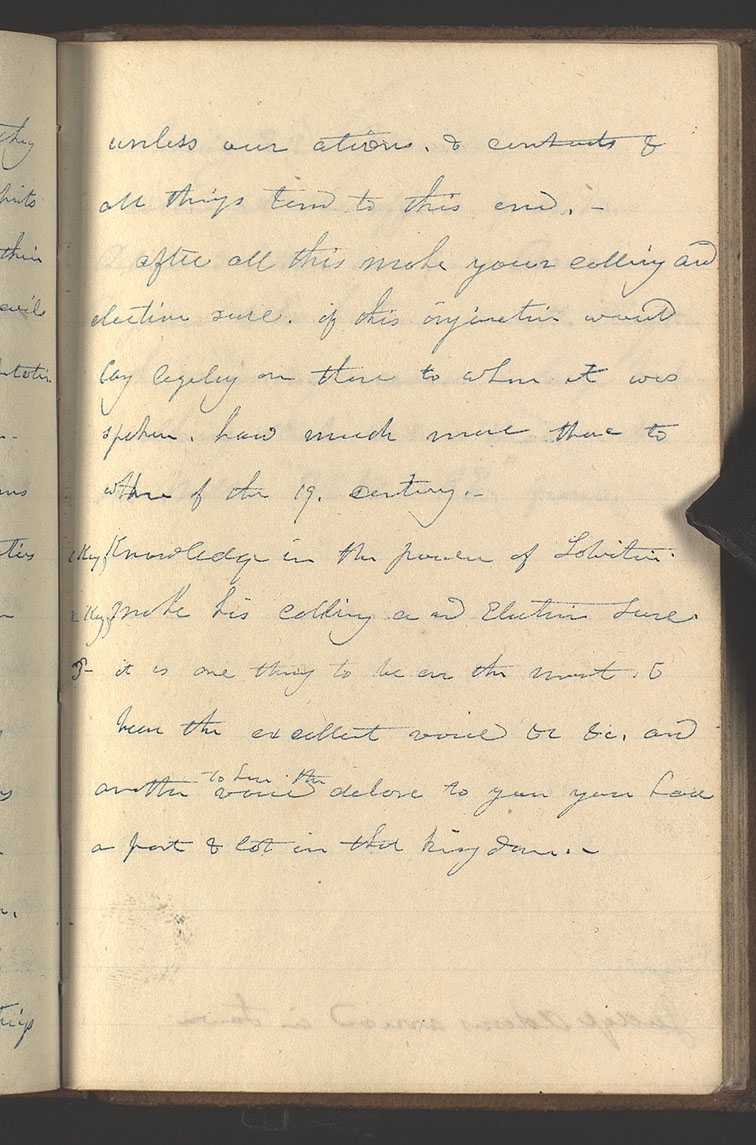 they
unless our ations. & contracts &
all things tend to this end.-
after all this make your calling and
election sure. if this injunction would
lay largely on those to whom it was
spoken. how much more those to
them of the 19. century.-
1 Key Knowledge in the power of Salvation.
2 Key make his calling and Election Sure
3- it is one thing to be on the mount. &
hear the excellent voice &c &c. and
another to hear the voice declare to you you have
a part & lot in that kingdom.-
Judge Adams arrived in town